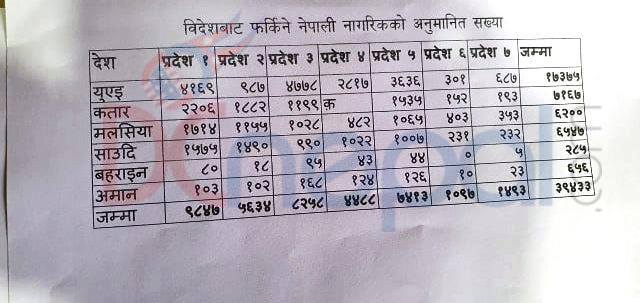 विदेशबाट फर्किने नेपाली नागरिकको अनुमानित सख्या
देश प्रदेश १ प्रदेश २ प्रदेश ३ प्रदेश ४ प्रदेश ५ प्रदेश ६ प्रदेश ७ जम्मा
युएइ ४१६९ ९८७ ४७७८ २८१७ ३६३६ ३०१ ६८७ १७३७५
कतार २२०६ १८८२ ११९९ क १५३५ १५२ १९३ ७१६७
मलसिया १७१४ ११५५ १०२८ ४८२ १०६५ ४०३ ३५३ ६२००
साउदि १५७५ १४९० ९९० १०२२ १००७ २३१ २३२ ६५४७
बहराइन ८० १८ ९५ ४३ ४४ ० ५ २८५
अमान १०३ १०२ १६८ १२४ १२६ १० २३ ६५६
जम्मा ९८४७ ५६३४ ८२५८ ४४८८ ७४१३ १०९७ १४९३ ३९४३३